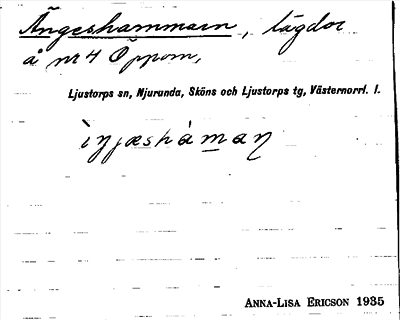 Ängeshammarn, lägdor
å nr 4 Öppom,
Ljustorps sn, Njurunda, Sköns och Ljustorps tg, Västernorrl. l.
ANNA-LISA ERICSON 1935